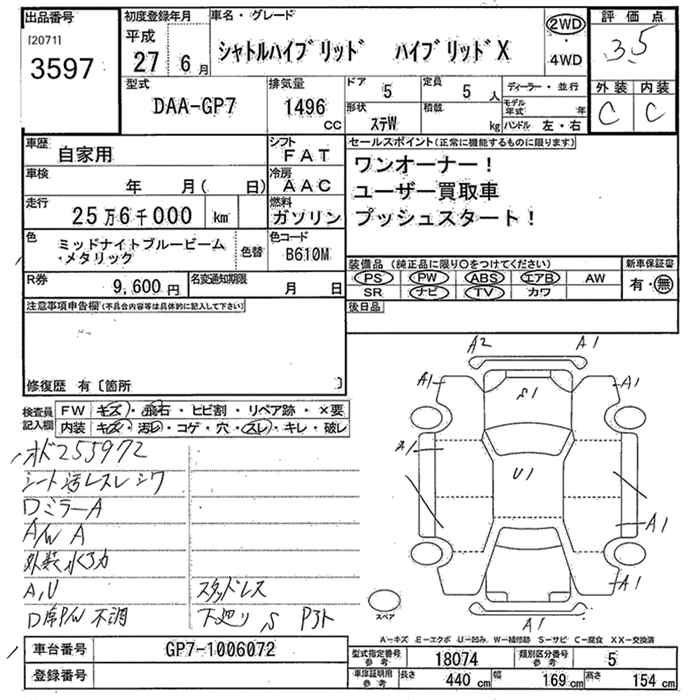 出品番号
[2071]
3597
初度登録年月
平成
27 6月
車名・グレード
シャトルハイブリッド ハイブリッドX
2WD
・
4WD
評価点
3.5
外装 内装
C C
型式
DAA-GP7
排気量
1496
cc
ドア
5
定員
5 人
形状
ステW
積載
kg
ディーラー・並行
モデル年式 年
ハンドル 左・右
車歴
自家用
シフト
FAT
車検
年 月( 日)
冷房
AAC
走行
25万6千000 km
燃料
ガソリン
色
ミッドナイトブルービーム
・メタリック
色替
色コード
B610M
R券
9,600円
名変通知期限
月 日
セールスポイント(正常に機能するものに限ります)
ワンオーナー!
ユーザー買取車
プッシュスタート!
装備品(純正品に限り○をつけてください)
PS PW ABS エアB AW
SR ナビ TV カワ
新車保証書
有・無
後日品
注意事項申告欄(不具合内容等は具体的に記入して下さい)
修復歴 有〔箇所 〕
検査員
記入欄
FW キズ・飛石・ヒビ割・リペア跡・×要
内装 キズ・汚レ・コゲ・穴・スレ・キレ・破レ
オド255972
シート汚レスレシワ
Dミラー A
A/W A
A,U
スタッドレス
D席P/W 不調
下廻り S
A2 A1
A1 S1 A1
A1
U1
A1
A1
A1
スペア
A-キズ E-エクボ U-凹み W-補修跡 S-サビ C-腐食 XX-交換済
車台番号
GP7-1006072
登録番号
型式指定番号
参考
18074
類別区分番号
参考
5
車庫証明用
参考
長さ 440 cm 幅 169 cm 高さ 154 cm